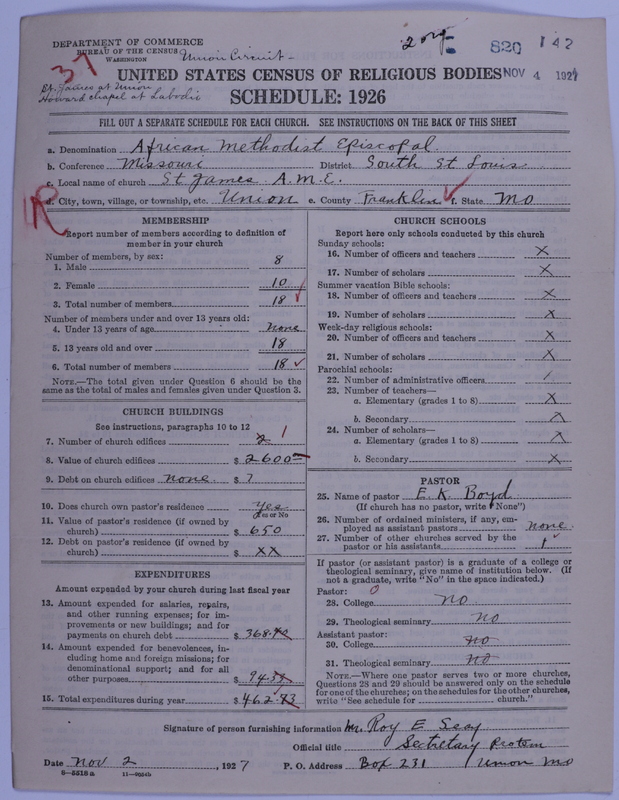 DEPARTMENT OF COMMERCE
BUREAU OF THE CENSUS
WASHINGTON
Union Circuit
2 org
820 142
37
St. James at Union
Howard chapel at Labodie
UNITED STATES CENSUS OF RELIGIOUS BODIES
NOV 4 1927
SCHEDULE: 1926
FILL OUT A SEPARATE SCHEDULE FOR EACH CHURCH. SEE INSTRUCTIONS ON THE BACK OF THIS SHEET
a. Denomination African Methodist Episcopal
b. Conference Missouri District South St Louis
c. Local name of church St James A.M.E.
d. City, town, village, or township, etc. Union e. County Franklin f. State Mo
MEMBERSHIP
Report number of members according to definition of
member in your church
Number of members, by sex:
1. Male 8
2. Female 10
3. Total number of members 18
Number of members under and over 13 years old:
4. Under 13 years of age none
5. 13 years old and over 18
6. Total number of members 18
NOTE.—The total given under Question 6 should be the
same as the total of males and females given under Question 3.
CHURCH BUILDINGS
See instructions, paragraphs 10 to 12
7. Number of church edifices 2 1
8. Value of church edifices $ 2600
9. Debt on church edifices none $ ?
10. Does church own pastor's residence Yes
Yes or No
11. Value of pastor's residence (if owned by
church) $ 650
12. Debt on pastor's residence (if owned by
church) $ XX
EXPENDITURES
Amount expended by your church during last fiscal year
13. Amount expended for salaries, repairs,
and other running expenses; for im-
provements or new buildings; and for
payments on church debt $ 368.
14. Amount expended for benevolences, in-
cluding home and foreign missions; for
denominational support; and for all
other purposes $ 94.
15. Total expenditures during year $ 462.
CHURCH SCHOOLS
Report here only schools conducted by this church
Sunday schools:
16. Number of officers and teachers X
17. Number of scholars X
Summer vacation Bible schools:
18. Number of officers and teachers X
19. Number of scholars X
Week-day religious schools:
20. Number of officers and teachers X
21. Number of scholars X
Parochial schools:
22. Number of administrative officers
23. Number of teachers—
a. Elementary (grades 1 to 8) X
b. Secondary X
24. Number of scholars—
a. Elementary (grades 1 to 8) X
b. Secondary X
PASTOR
25. Name of pastor E. K. Boyd
(If church has no pastor, write "None")
26. Number of ordained ministers, if any, em-
ployed as assistant pastors none
27. Number of other churches served by the
pastor or his assistants 1
If pastor (or assistant pastor) is a graduate of a college or
theological seminary, give name of institution below. (If
not a graduate, write "No" in the space indicated.)
Pastor: 0
28. College no
29. Theological seminary no
Assistant pastor:
30. College no
31. Theological seminary no
NOTE.—Where one pastor serves two or more churches,
Questions 28 and 29 should be answered only on the schedule
for one of the churches; on the schedules for the other churches,
write "See schedule for church."
Signature of person furnishing information Mr. Roy E Seay
Official title Secretary Protem
Date Nov 2, 1927 P. O. Address Box 231 Union Mo
8—5518a 11—9654b